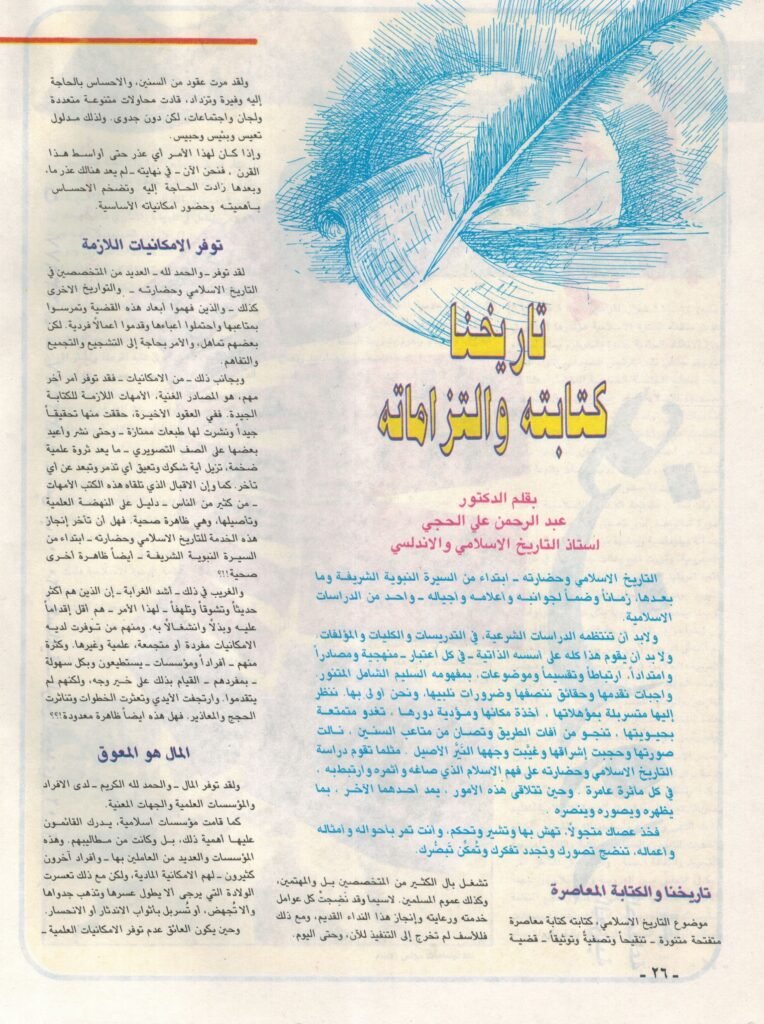 تاريخنا
كتابته والتزاماته
بقلم الدكتور
عبد الرحمن علي الحجي
استاذ التاريخ الاسلامي والاندلسي
التاريخ الاسلامي وحضارته ـ ابتداء من السيرة النبوية الشريفة وما
بعدها، زماناً وضماً لجوانبه وأعلامه وأجياله ـ واحد من الدراسات
الاسلامية.
ولابد أن تنتظمه الدراسات الشرعية، في التدريسات والكليات والمؤلفات.
ولابد أن يقوم هذا كله على أسسه الذاتية ـ في كل اعتبار ـ منهجية ومصادراً
وامتداداً، ارتباطاً وتقسيماً وموضوعات، بمفهومه السليم الشامل المتنور.
واجبات نقدمها وحقائق ننصفها وضرورات نلبيها، ونحن أولى بها. ننظر
إليها متسربلة بمؤهلاتها ، آخذة مكانها ومؤدية دورها ، تغدو متمتعة
بحيويتها ، تنجو من آفات الطريق وتصان من متاعب السنين ، نالت
صورتها وحجبت إشراقها وغيّبت وجهها النيّر الأصيل . مثلما تقوم دراسة
التاريخ الاسلامي وحضارته على فهم الاسلام الذي صاغه وأثمره وارتبط به ،
في كل مأثرة عامرة . وحين تتلاقى هذه الأمور ، يمد أحدهما الآخر ، بما
يظهره ويصوره وينصره .
فخذ عصاك متجولاً، تهش بها وتشير وتحكم، وأنت تمر بأحواله وأمثاله
وأعماله، تنضج تصورك وتجدد تفكرك وتُمكّن تبصُّرك.
تاريخنا والكتابة المعاصرة
موضوع التاريخ الاسلامي، كتابته كتابة معاصرة
متفتحة متنورة ـ تنقيحاً وتصفيةً وتوثيقاً ـ قضية
تشغل بال الكثير من المتخصصين بل والمهتمين،
وكذلك عموم المسلمين. لاسيما وقد نضجتْ كل عوامل
خدمته ورعايته وإنجاز هذا النداء القديم، ومع ذلك
فللأسف لم تخرج إلى التنفيذ للآن، وحتى اليوم.
ولقد مرت عقود من السنين، والاحساس بالحاجة
إليه وفيرة وتزداد، قادت محاولات متنوعة متعددة
ولجان واجتماعات، لكن دون جدوى. ولذلك مدلول
تعيس وبئيس وحبيس.
وإذا كان لهذا الأمر أي عذر حتى أواسط هذا
القرن ، فنحن الآن ـ في نهايته ـ لم يعد هنالك عذر ما،
وبعدها زادت الحاجة إليه وتضخم الاحساس
بأهميته وحضور امكانياته الأساسية.
توفر الامكانيات اللازمة
لقد توفر ـ والحمد لله ـ العديد من المتخصصين في
التاريخ الاسلامي وحضارته ـ والتواريخ الأخرى
كذلك ـ والذين فهموا أبعاد هذه القضية وتمرسوا
بمتاعبها واحتملوا أعباءها وقدموا أعمالاً فردية. لكن
بعضهم تماهل، والأمر بحاجة إلى التشجيع والتجميع
والتفاهم.
وبجانب ذلك ـ من الامكانيات ـ فقد توفر أمر آخر
مهم، هو المصادر الغنية، الأمهات اللازمة للكتابة
الجيدة. ففي العقود الأخيرة، حققت منها تحقيقاً
جيداً ونشرت لها طبعات ممتازة ـ وحتى نشر وأعيد
بعضها على الصف التصويري ـ ما يعد ثروة علمية
ضخمة، تزيل أية شكوك وتعيق أي تذمر وتبعد عن أي
تأخر. كما وإن الاقبال الذي تلقاه هذه الكتب الأمهات
ـ من كثير من الناس ـ دليل على النهضة العلمية
وتأصيلها، وهي ظاهرة صحية. فهل أن تأخر إنجاز
هذه الخدمة للتاريخ الإسلامي وحضارته ـ ابتداء من
السيرة النبوية الشريفة ـ أيضاً ظاهرة أخرى
صحية!!؟
والغريب في ذلك ـ أشد الغرابة ـ إن الذين هم أكثر
حديثاً وتشوقاً وتلهفاً ـ لهذا الأمر ـ هم أقل إقداماً
عليه وبذلاً وانشغالاً به. ومنهم من توفرت لديه
الامكانيات مفردة أو متجمعة، علمية وغيرها. وكثرة
منهم ـ أفراداً ومؤسسات ـ يستطيعون وبكل سهولة
ـ بمفردهم ـ القيام بذلك على خير وجه، ولكنهم لم
يتقدموا. وارتجفت الأيدي وتعثرت الخطوات وتناثرت
الحجج والمعاذير. فهل هذه أيضاً ظاهرة معدودة!؟؟
المال هو المعوق
ولقد توفر المال ـ والحمد لله الكريم ـ لدى الافراد
والمؤسسات العلمية والجهات المعنية.
كما قامت مؤسسات اسلامية، يدرك القائمون
عليها أهمية ذلك، بل وكانت من مطاليبهم. وهذه
المؤسسات والعديد من العاملين بها ـ وأفراد آخرون
كثيرون ـ لهم الامكانية المادية، ولكن مع ذلك تعسرت
الولادة التي يرجى ألا يطول عسرها وتذهب جدواها
والا تُجهض، أو تُسربل بأثواب الاندثار أو الانحسار.
وحين يكون العائق عدم توفر الامكانيات العلمية ـ
ـ ٢٦ ـ